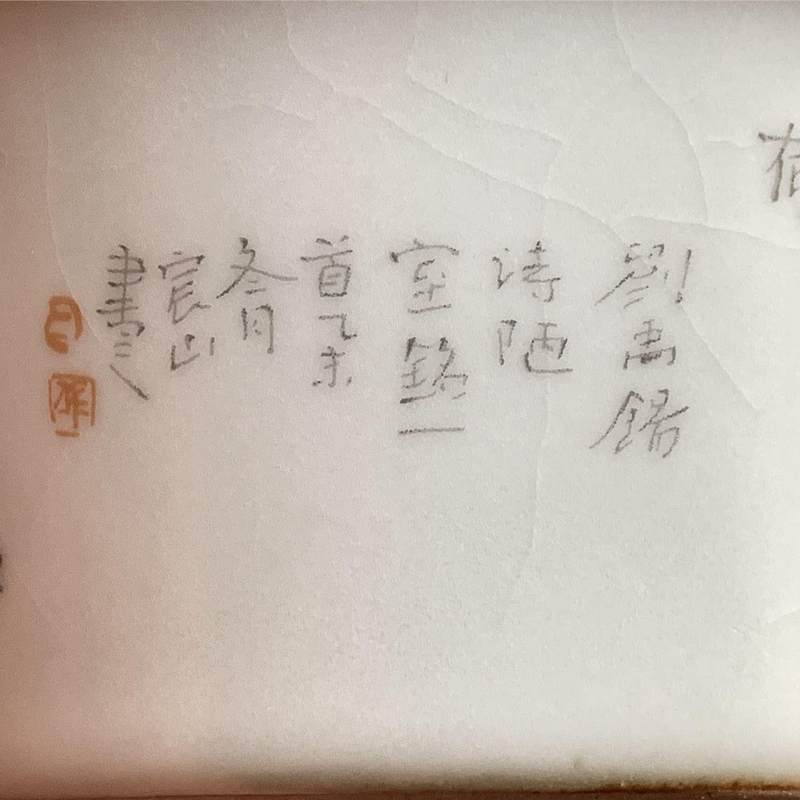 劉禹錫
詩陋
室銘一
首乙未
冬月
山
書之